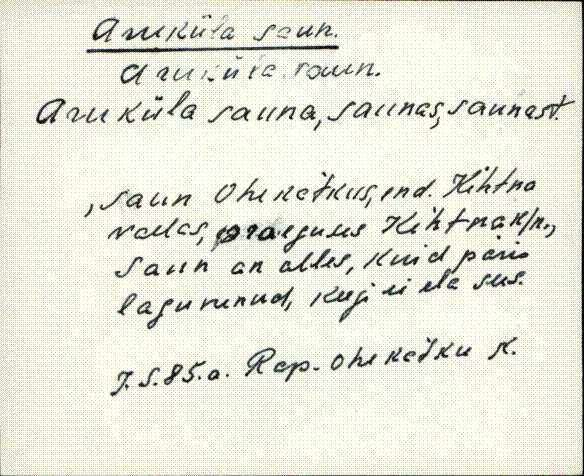 Aruküla saun.
Aruküla saun.
Aruküla sauna, saunas, saunast.
, saun Ohekatkus, end. Kehtna
vallas, praeguses Kehtna k/n.,
Saun on alles, kuid päris
lagunenud, keegi ei ela sees.
J.S. 85.a. Rap. Ohekatku k.